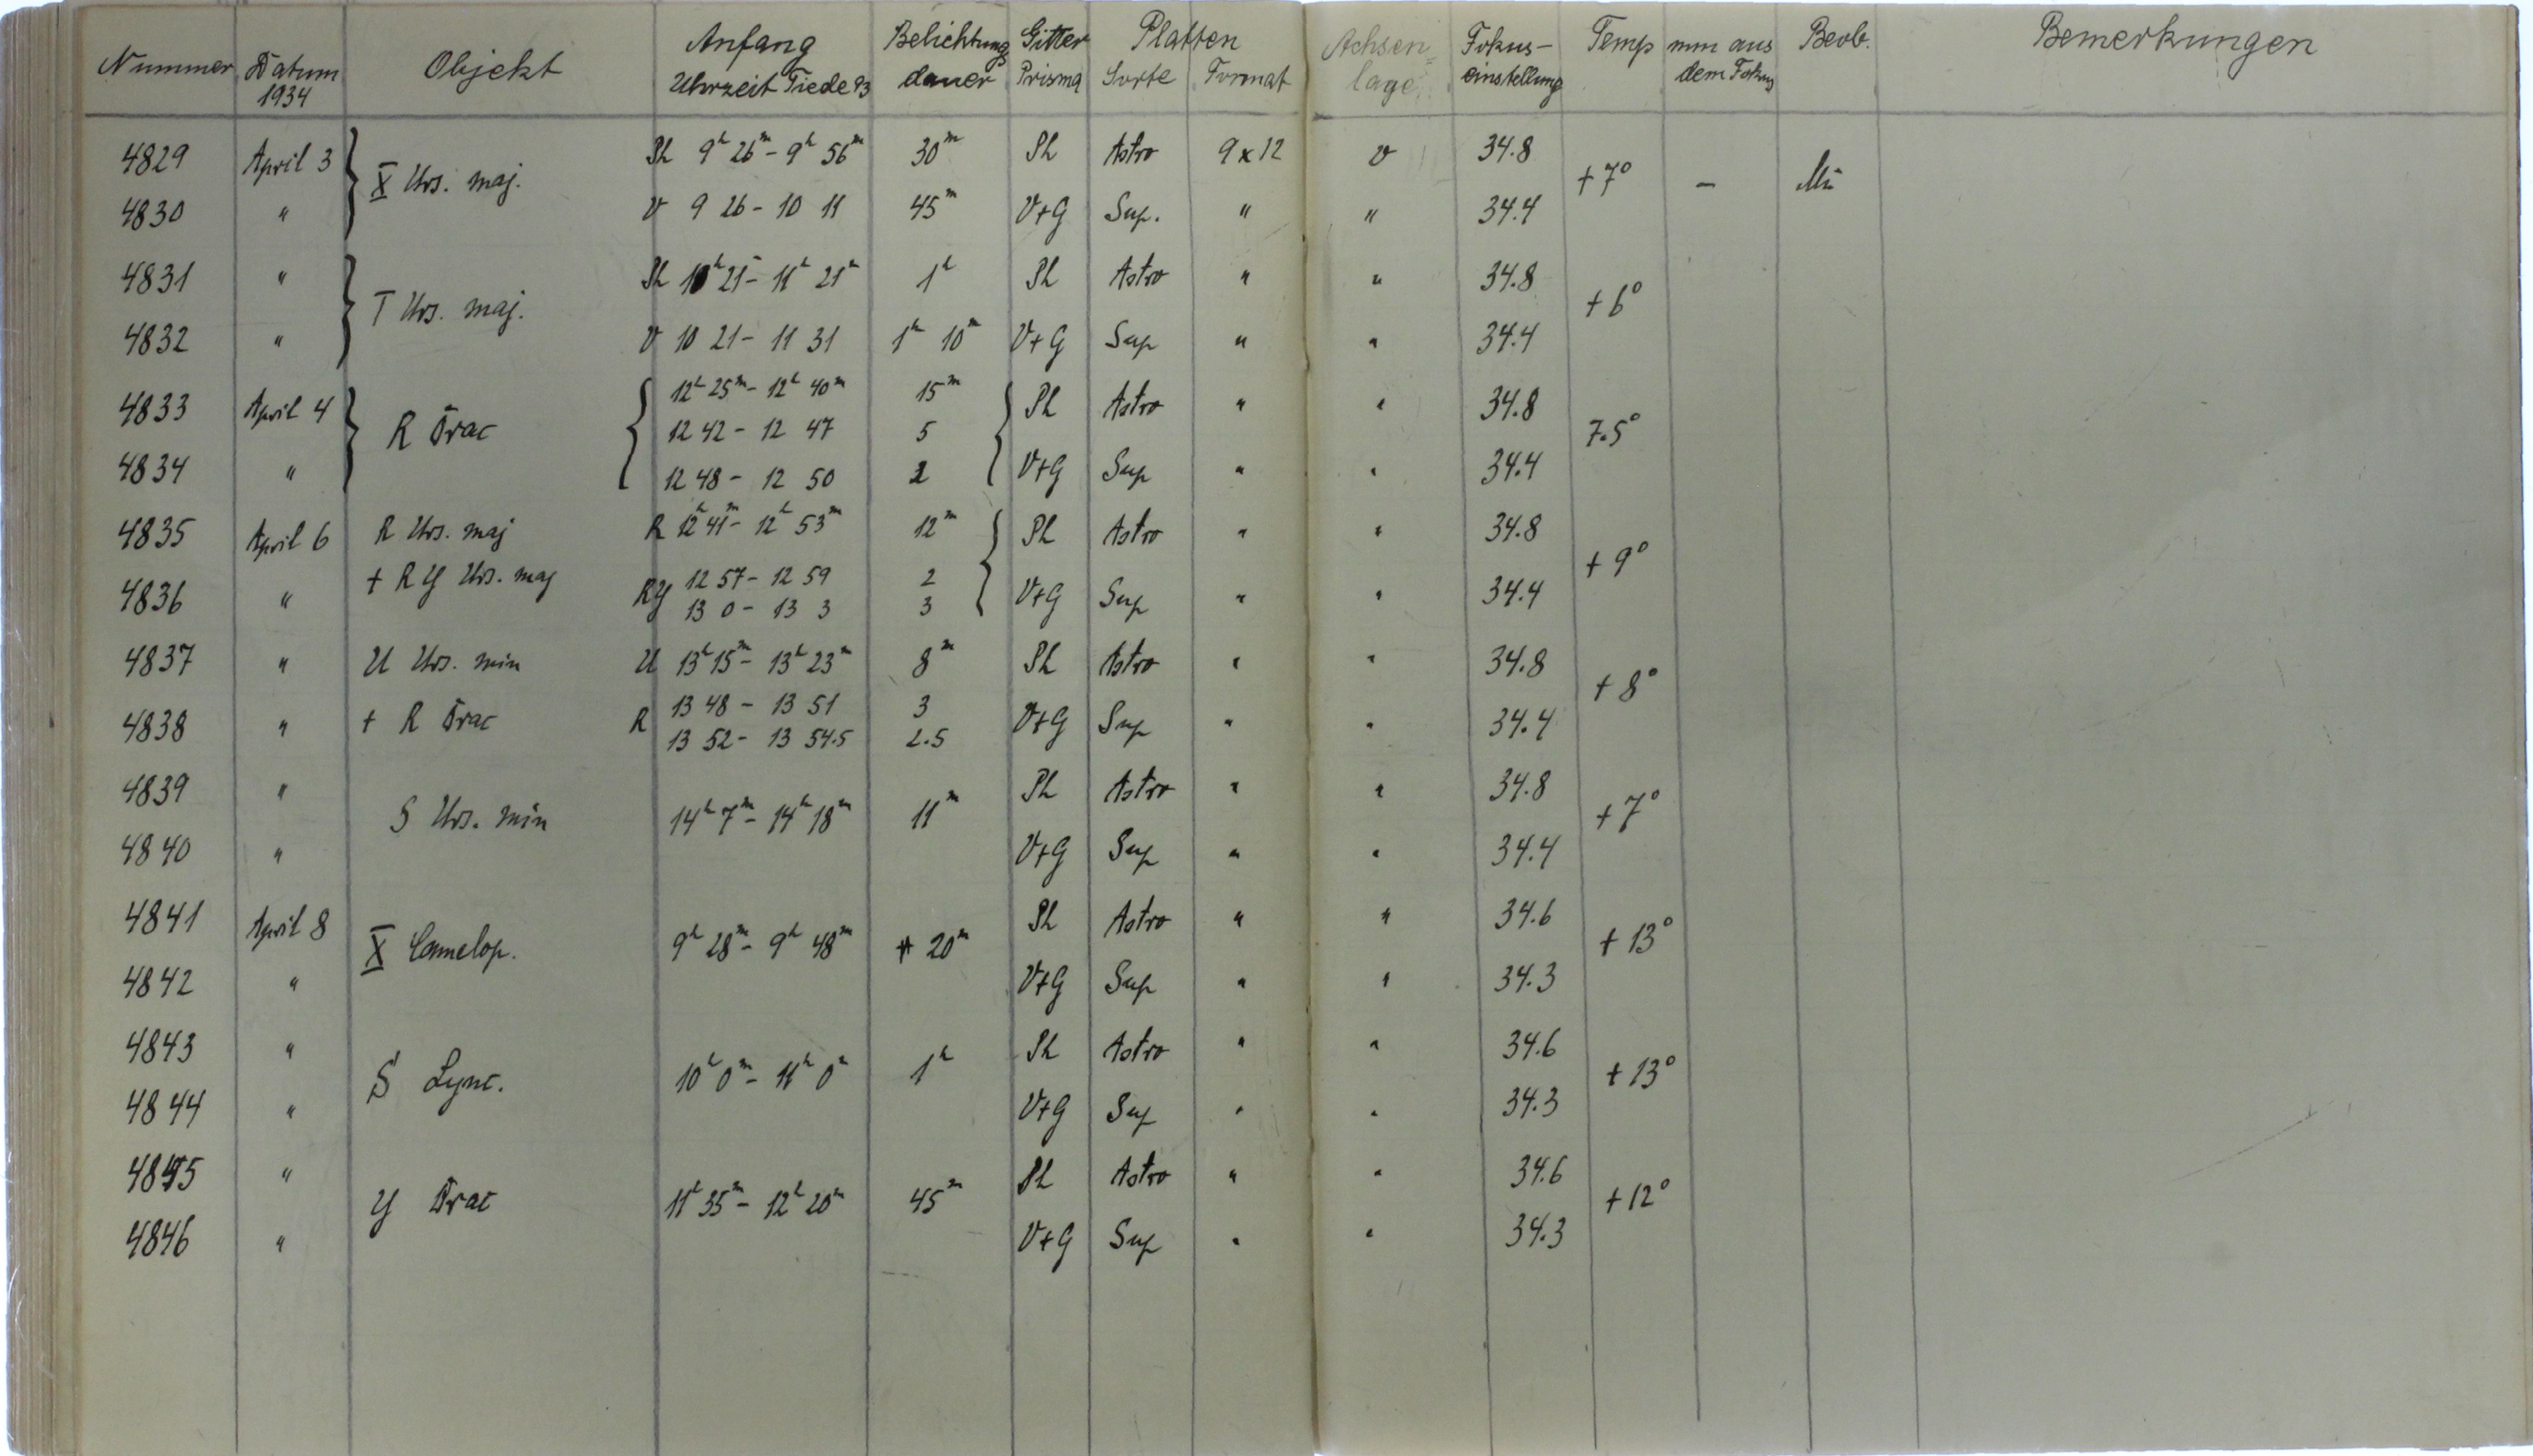 Nummer Datum 1934 Objekt Anfang Uhrzeit Tiede 93 Belichtungsdauer Gitter Prisma Platten Sorte Format Achsenlage Fokuseinstellung Temp mm aus dem Fokus Beob. Bemerkungen
4829 April 3 X Urs. maj. Ph 9h 26m - 9h 56m 30m Ph Astro 9 x 12 v 34.8 +7° -
4830 " V 9 26 - 10 11 45m V+G Sup. " " 34.4
4831 " T Urs. maj. Ph 10h 21 - 11h 21m 1h Ph Astro " " 34.8 +6°
4832 " V 10 21 - 11 31 1h 10m V+G Sup " " 34.4
4833 April 4 R Drac 12h 25m - 12h 40m 15m Ph Astro " " 34.8 7.5°
12 42 - 12 47 5
4834 " 12 48 - 12 50 2 V+G Sup " " 34.4
4835 April 6 R Urs. maj R 12h 41m - 12h 53m 12m Ph Astro " " 34.8 +9°
+ R Y Urs. maj RY 12 57 - 12 59 2
4836 " 13 0 - 13 3 3 V+G Sup " " 34.4
4837 " U Urs. min U 13h 15m - 13h 23m 8m Ph Astro " " 34.8 +8°
+ R Drac R 13 48 - 13 51 3
4838 " 13 52 - 13 54.5 2.5 V+G Sup " " 34.4
4839 " S Urs. min 14h 7m - 14h 18m 11m Ph Astro " " 34.8 +7°
4840 " V+G Sup " " 34.4
4841 April 8 X Camelop. 9h 28m - 9h 48m 20m Ph Astro " " 34.6 +13°
4842 " V+G Sup " " 34.3
4843 " S Lync. 10h 0m - 11h 0m 1h Ph Astro " " 34.6 +13°
4844 " V+G Sup " " 34.3
4845 " Y Drac 11h 35m - 12h 20m 45m Ph Astro " " 34.6 +12°
4846 " V+G Sup " " 34.3